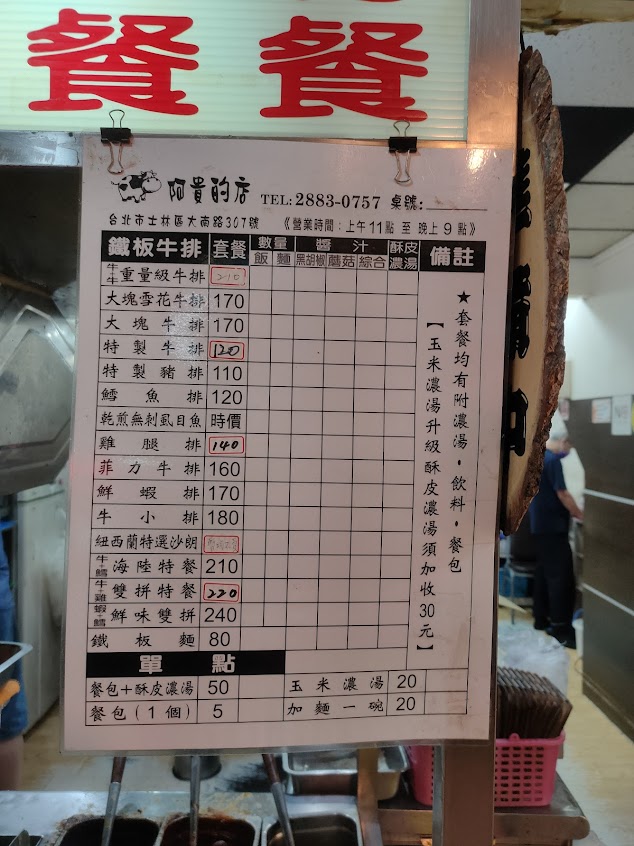 餐 餐
阿貴的店 TEL:2883-0757 桌號:
台北市士林區大南路307號 《營業時間:上午11點 至 晚上9點》
鐵板牛排 套餐 數量 飯 麵 醬汁 黑胡椒 蘑菇 綜合 酥皮濃湯 備註
重量級牛排 210
大塊雪花牛排 170
大塊牛排 170
特製牛排 120
特製豬排 110
鱈魚排 120
乾煎無刺虱目魚 時價
雞腿排 140
菲力牛排 160
鮮蝦排 170
牛小排 180
紐西蘭特選沙朗
牛+鱈 海陸特餐 210
牛+雞 雙拼特餐 220
蝦+鱈 鮮味雙拼 240
鐵板麵 80
★套餐均有附濃湯。飲料。餐包
【玉米濃湯升級酥皮濃湯須加收30元】
單點
餐包+酥皮濃湯 50 玉米濃湯 20
餐包(1個) 5 加麵一碗 20